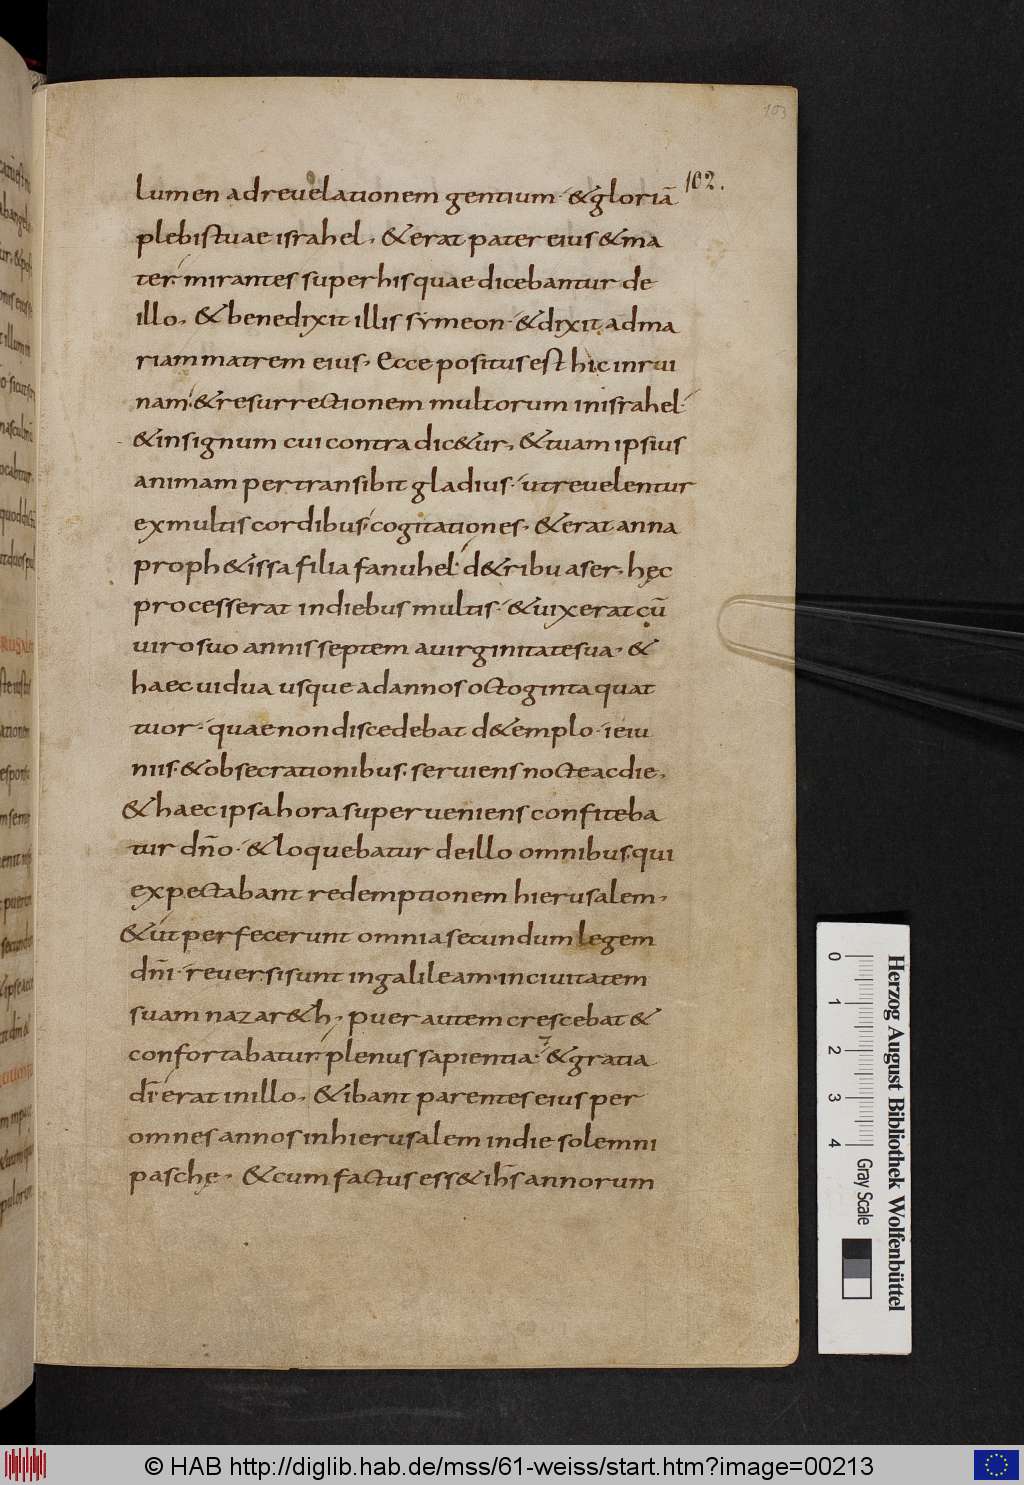 103
102.
lumen ad revelationem gentium· & gloriā
plebis tuae israhel, & erat pater eius & ma
ter· mirantes super his quae dicebantur de
illo, & benedixit illis symeon· & dixit ad ma
riam matrem eius, Ecce positus est hic in rui
nam· & resurrectionem multorum in israhel·
& in signum cui contradic&ur, & tuam ipsius
animam pertransibit gladius· ut revelentur
ex multis cordibus cogitationes, & erat anna
proph&issa filia fanuhel· de tribu aser, hęc
processerat in diebus multis· & uixerat cū
uiro suo annis septem a uirginitate sua, &
haec uidua usque ad annos octoginta quat
tuor· quae non discedebat de templo· ieiu
niis· & obsecrationibus· seruiens nocte ac die,
& haec ipsa hora superueniens confiteba
tur dn̄o· & loquebatur de illo omnibus· qui
expectabant redemptionem hierusalem,
& ut perfecerunt omnia secundum legem
dn̄i· reuersi sunt in galileam· in ciuitatem
suam nazar&h, puer autem crescebat &
confortabatur· plenus sapientia· & gratia
dī erat in illo, & ibant parentes eius per
omnes annos in hierusalem in die solemni
paschę, & cum factus ess& ih̄s annorum
0 1 2 3 4
Gray Scale
Herzog August Bibliothek Wolfenbüttel
© HAB http://diglib.hab.de/mss/61-weiss/start.htm?image=00213